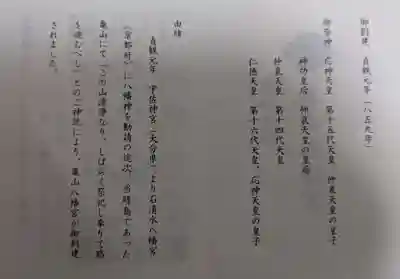 御創建 貞観元年(八五九年)
御祭神 応神天皇 第十五代天皇 仲哀天皇の皇子
神功皇后 仲哀天皇の皇后
仲哀天皇 第十四代天皇
仁徳天皇 第十六代天皇、応神天皇の皇子
由緒
貞観元年 宇佐神宮(大分県)より石清水八幡宮
(京都府)に八幡神を勧請の途次、当時島であった
亀山にて「この山清浄なり、しばらく祭祀し奉りて
を進むべし」とのご神託により、亀山八幡宮が御創建
されました。